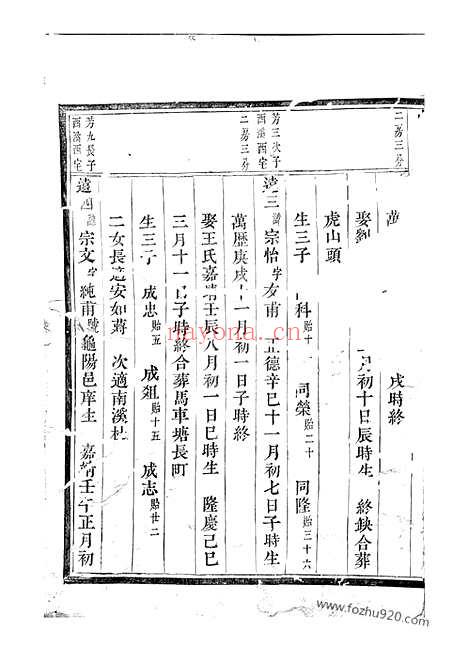 二房三分
萬 戌時終
娶劉 月初十日辰時生 終缺合葬
虎山頭
生三子 科貽十 同榮貽二十 同隆貽三十六
芳三次子
西溪西宅
二房三分
遠三諱宗怡字友甫 正德辛巳十一月初七日子時生
萬歷庚戌十一月初一日子時終
娶王氏嘉靖壬辰八月初一日巳時生 隆慶己巳
三月十一日子時終合葬馬車塘長町
生三子 成忠貽五 成爼貽十五 成志貽廿二
二女長適安如蔣 次適南溪杜
芳九長子
西溪西宅
遠四諱宗文字純甫號龜陽邑庠生 嘉靖壬午正月初
nayona.cn
www.fozhu920.com